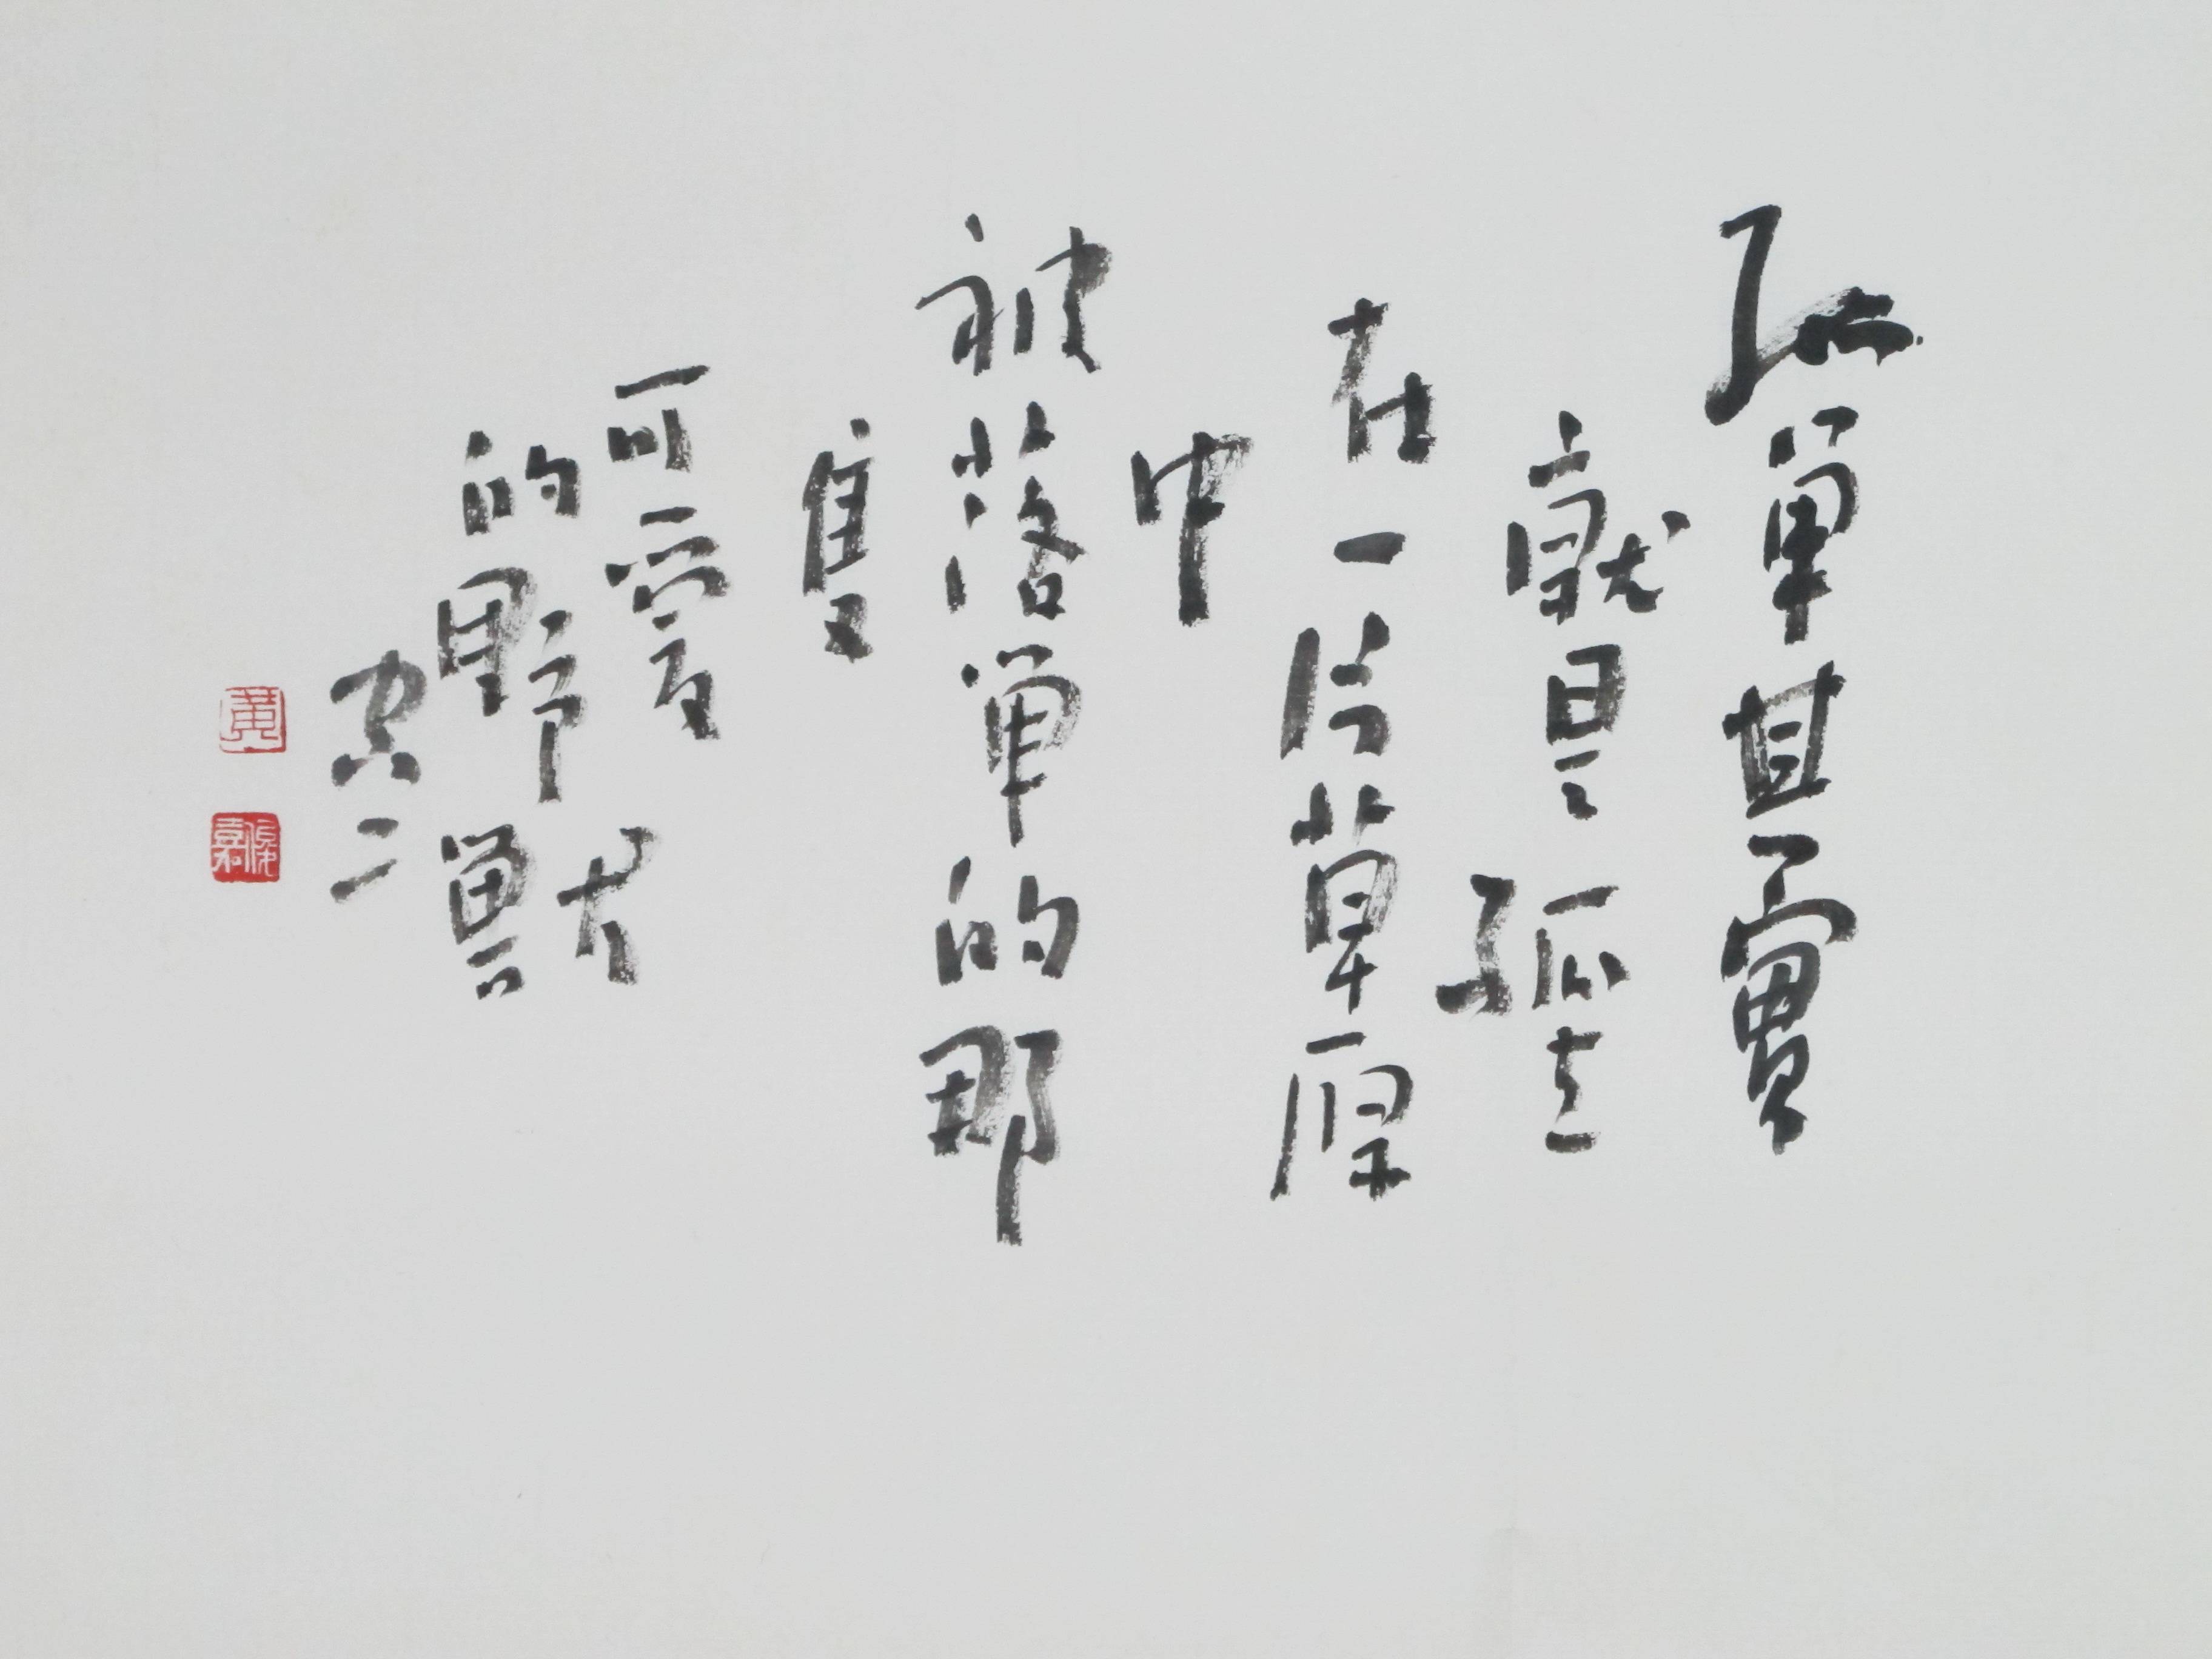 孤單其實
就是孤立
在一片草原
中
被落單的那
隻
可愛
的野獸
黃
俊嘉